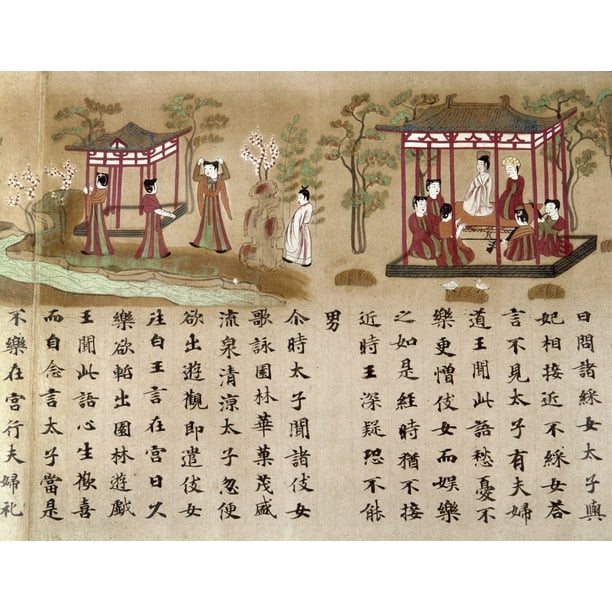 日問諸綵女太子與
妃相接近不綵女荅
言不見太子有夫婦
道王聞此語愁憂不
樂更憎伎女而娛樂
之如是經時猶不接
近時王深疑恐不能
男
尒時太子聞諸伎女
歌詠園林華菓茂盛
流泉清涼太子忽便
欲出遊觀即遣伎女
往白王言在宮日久
樂欲暫出園林遊戲
王聞此語心生歡喜
而自念言太子當是
不樂在宮行夫婦礼